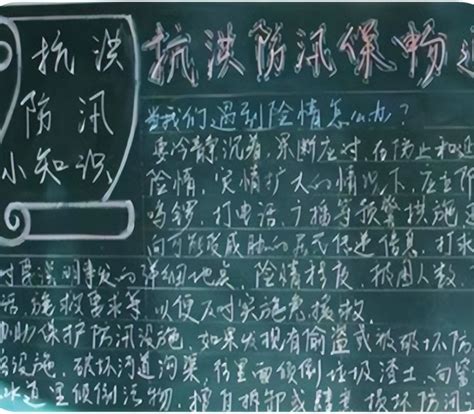 抗洪
防汛
小知识
抗洪防汛保畅通
当我们遇到险情怎么办？
要冷静沉着，果断应对，在防止和延
险情，灾情扩大的情况下，应立即
鸣锣，打电话，广播等预警措施
向可能受威胁的居民传递信息，打
时要说明事发的详细地点，险情程度，被困人数
话，施救要求等，以便及时实施救援救
协助保护防汛设施，如果发现有偷盗或破坏防
设施，破坏河道沟渠，往里面倾倒垃圾渣土，向
水道里倾倒污物，擅自拆卸或肆意损坏防汛